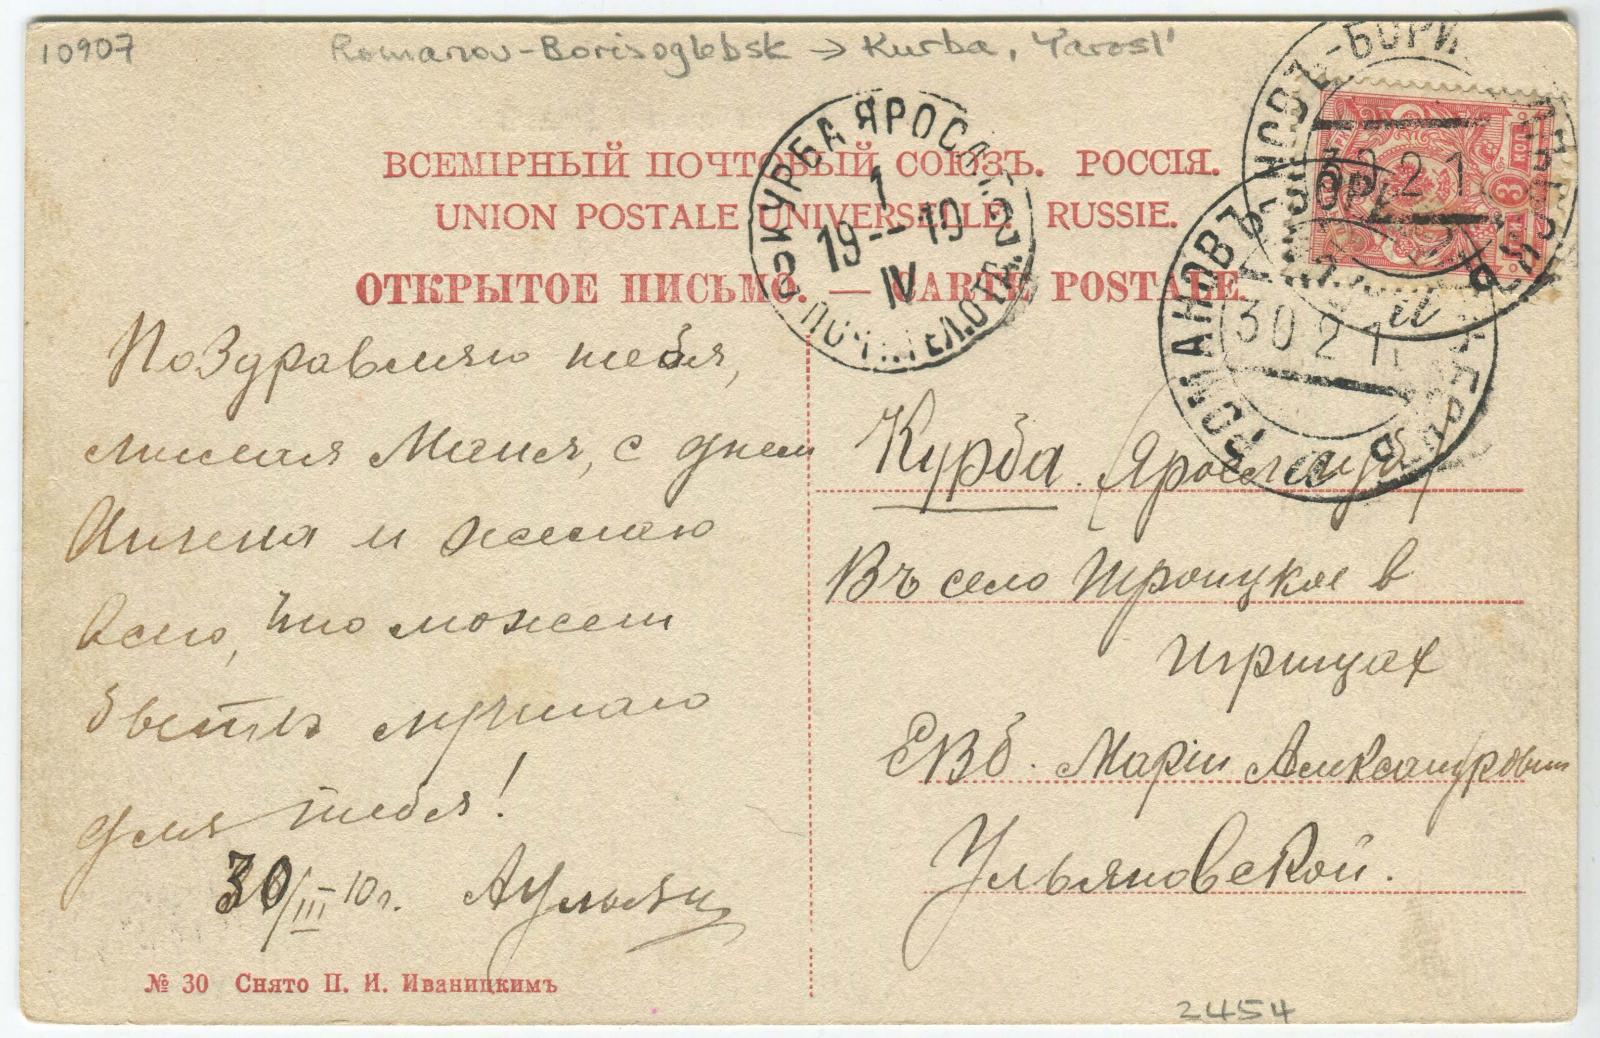 10907
Romanov-Borisoglebsk → Kurba, Yarosl'
ВСЕМІРНЫЙ ПОЧТОВЫЙ СОЮЗЪ. РОССІЯ.
UNION POSTALE UNIVERSELLE. RUSSIE.
ОТКРЫТОЕ ПИСЬМО. — CARTE POSTALE.
КУРБА ЯРОСЛ.
1
19 -- 10
IV
ПОЧТ. ТЕЛ. ОТД.
РОМАНОВЪ-БОРИ
30 2 1
РОМАНОВЪ-БОРИ
30 2 1
3 КОП
Поздравляю тебя,
милая Маня, с днем
Ангела и желаю
всего, что может
быть лучшаго
для тебя!
30/III 10 г.
Курба (Яросл. губ)
Въ село Троицкое в
Игрищах
ЕВб. Маріи Александровн
Ульяновской.
№ 30 Снято П. И. Иваницкимъ
2454